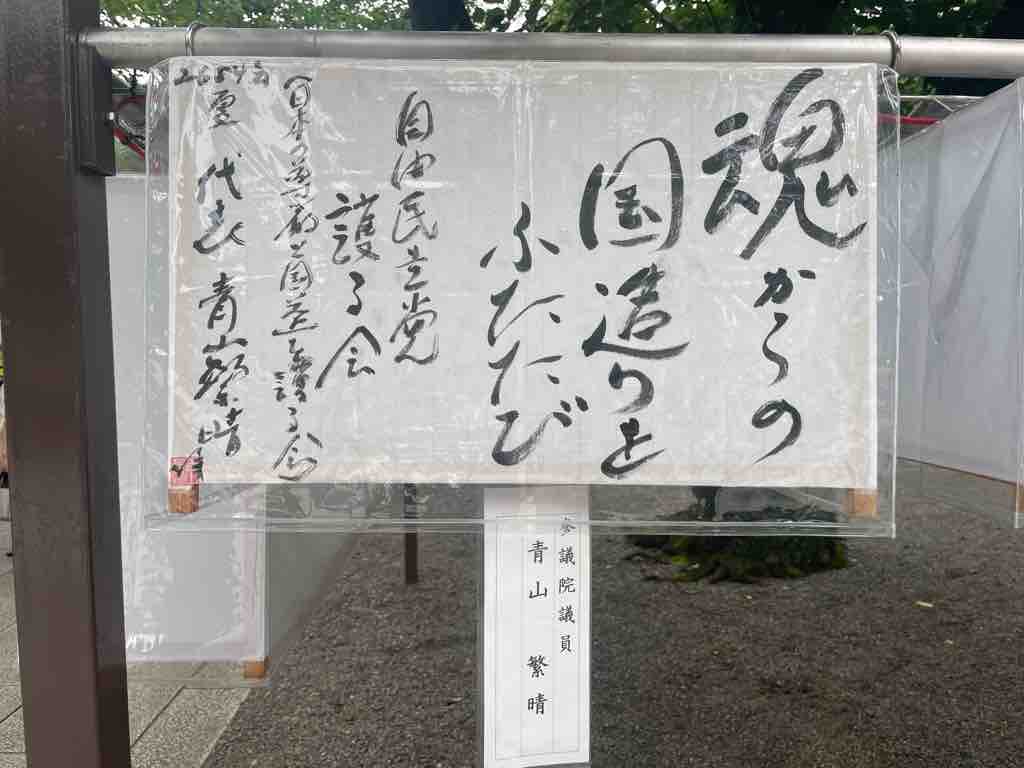 魂からの
国造りを
ふたたび
自由民主党
護る会
(日本の尊厳と国益を護る会)
代表 青山繁晴
2684
参議院議員
青山 繁晴